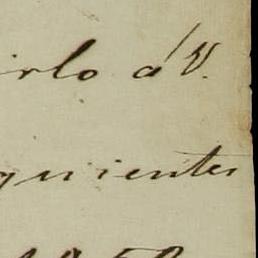 irlo á V.
quientes